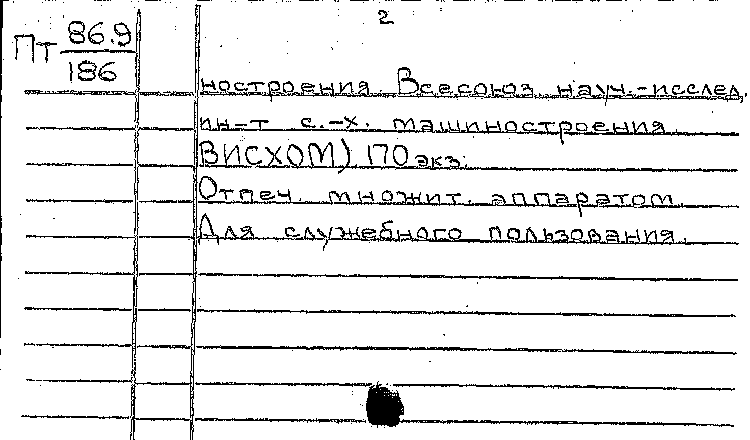 2
Пт 86.9
186
ностроения. Всесоюз. науч.-исслед.
ин-т с.-х. машиностроения
ВИСХОМ) 170 экз.
Отпеч. множит. аппаратом.
Для служебного пользования.